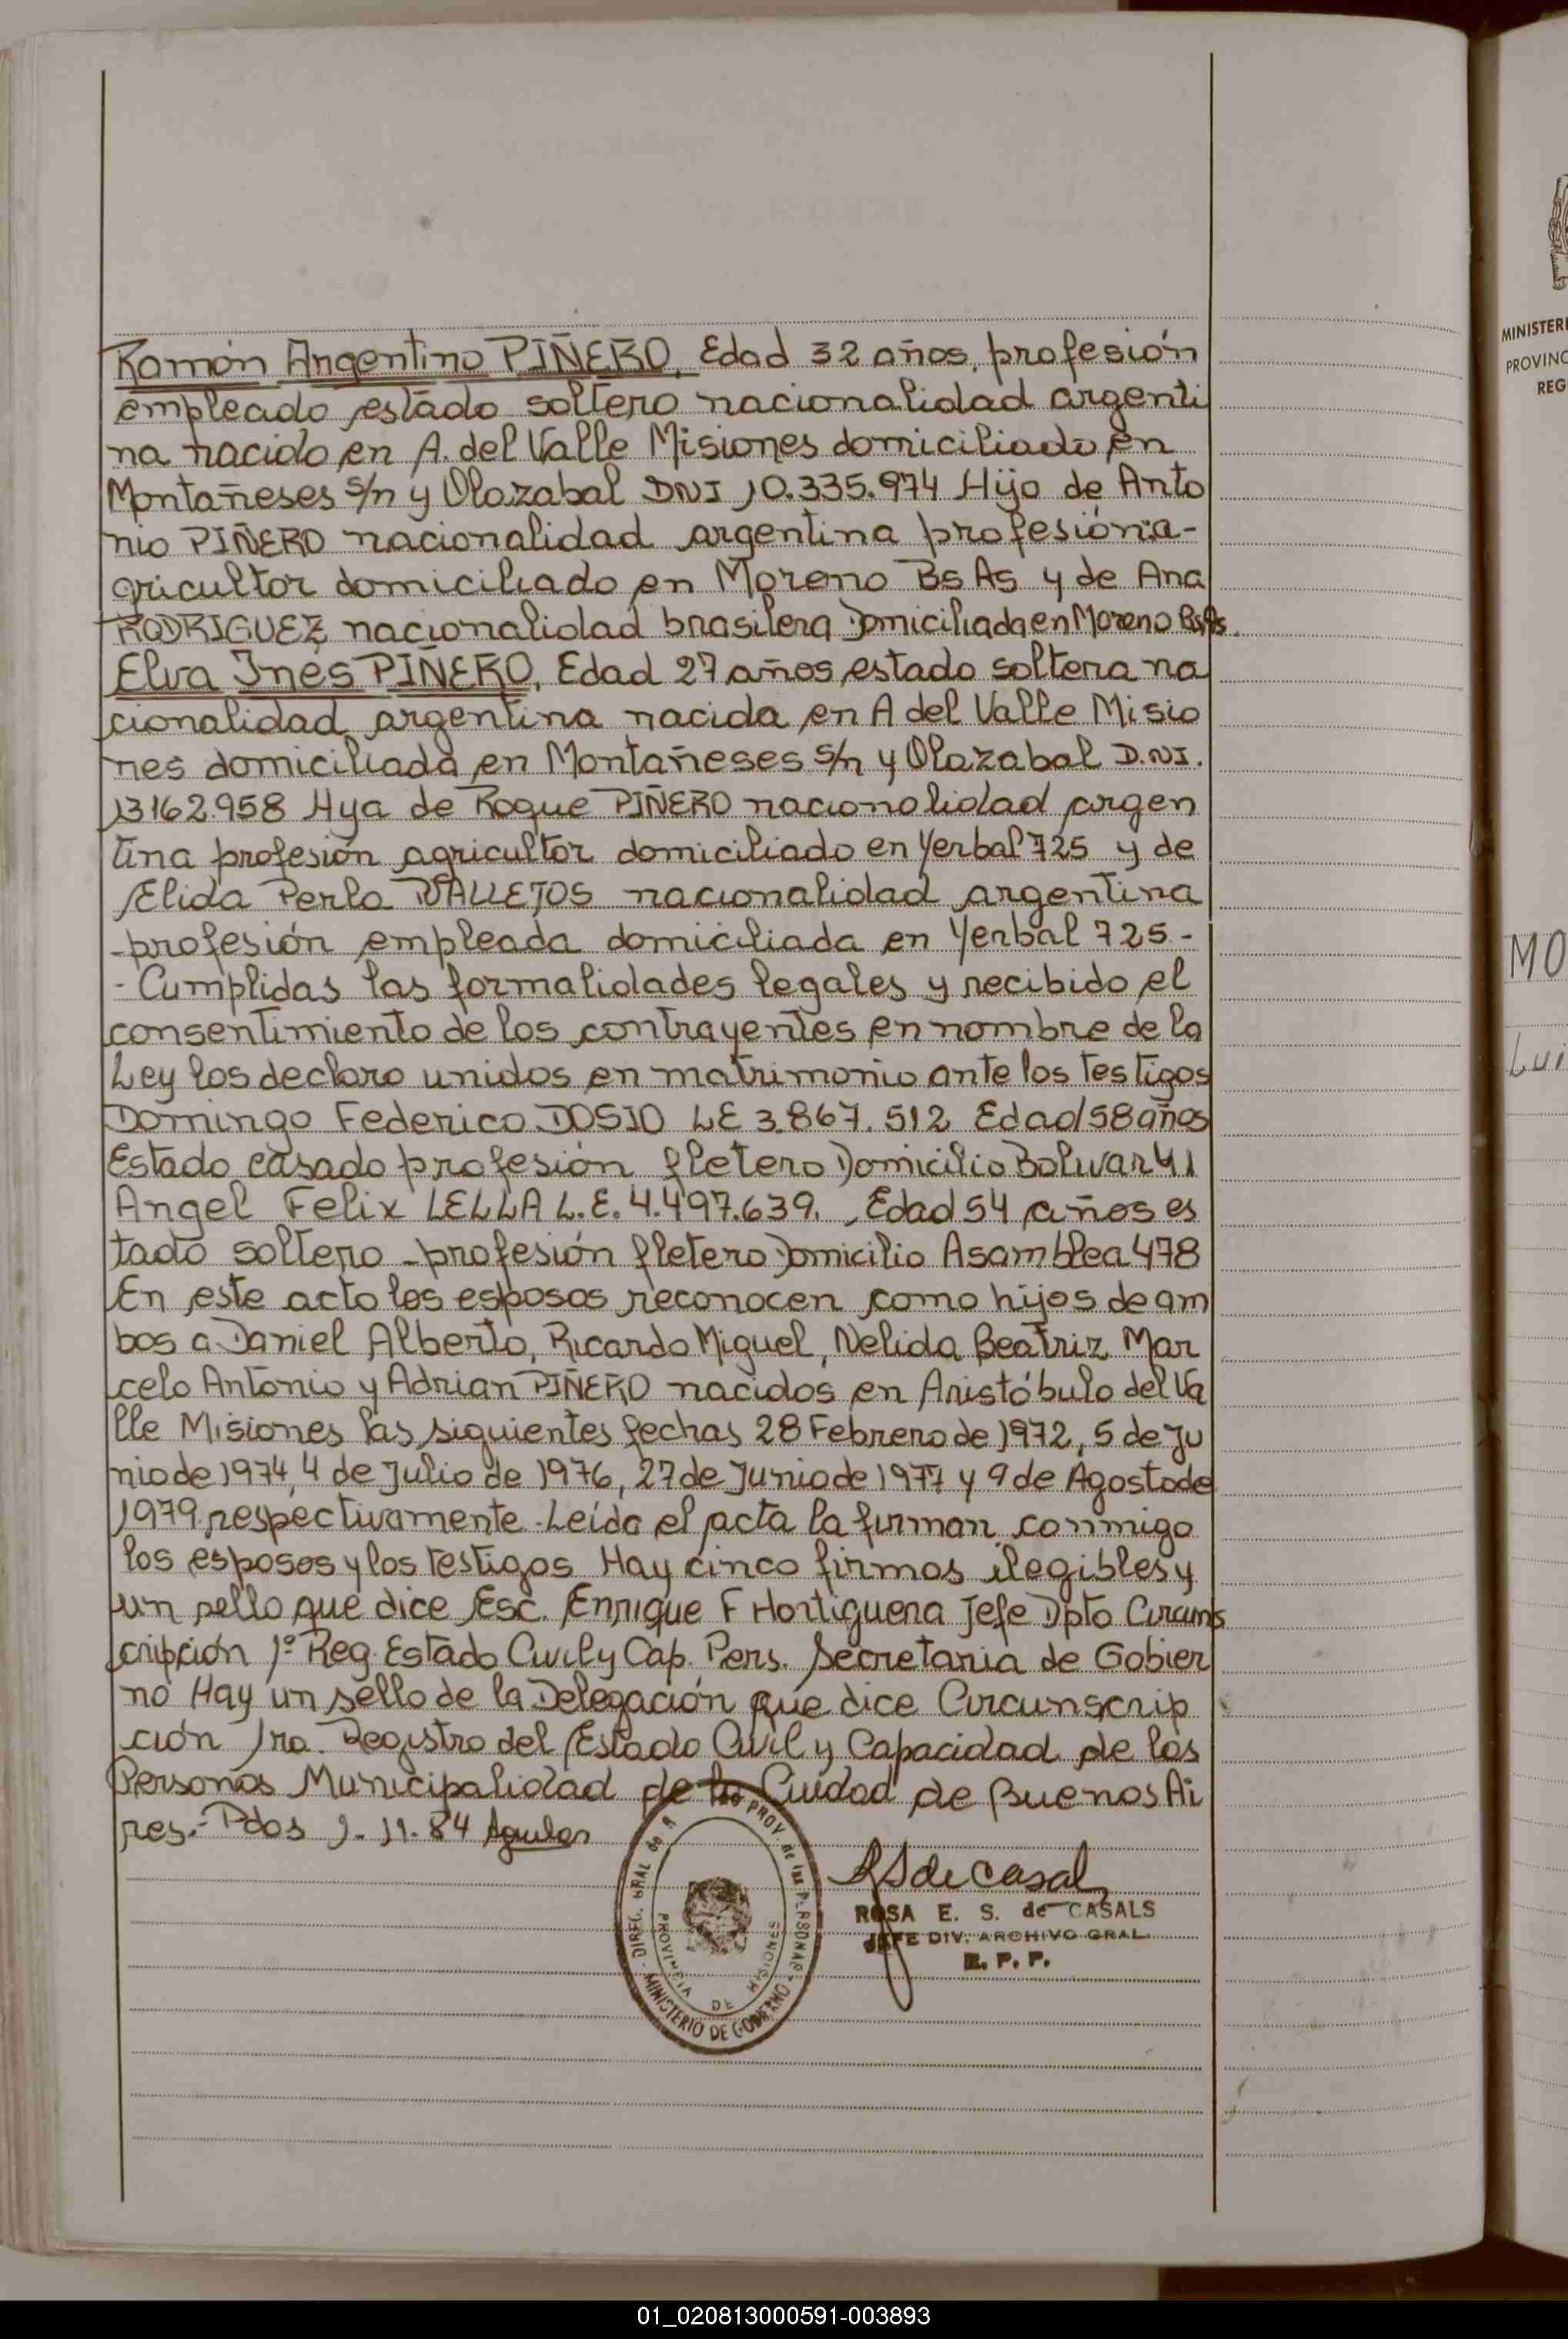 Ramón Argentino PIÑERO, Edad 32 años, profesión
empleado estado soltero nacionalidad argenti
na nacido en A. del Valle Misiones domiciliado en
Montañeses s/n y Olazabal DNI 10.335.974 Hijo de Anto
nio PIÑERO nacionalidad argentina profesión a-
gricultor domiciliado en Moreno Bs As y de Ana
RODRIGUEZ nacionalidad brasilera Domiciliada en Moreno Bs As.
Elva Inés PIÑERO, Edad 27 años estado soltera na
cionalidad argentina nacida en A del Valle Misio
nes domiciliada en Montañeses s/n y Olazabal D.NI.
13162.958 Hija de Roque PIÑERO nacionalidad argen
tina profesión agricultor domiciliado en Yerbal 725 y de
Elida Perla VALLEJOS nacionalidad argentina
-profesión empleada domiciliada en Yerbal 725-
- Cumplidas las formalidades legales y recibido el
consentimiento de los contrayentes en nombre de la
Ley los declaro unidos en matrimonio ante los testigos
Domingo Federico DOSIO LE 3.867.512 Edad 58 años
Estado casado profesión fletero Domicilio Bolivar 41
Angel Felix LELLA L.E. 4.497.639. Edad 54 años es
tado soltero - profesión fletero Domicilio Asamblea 478
En este acto los esposos reconocen como hijos de am
bos a Daniel Alberto, Ricardo Miguel, Nelida Beatriz Mar
celo Antonio y Adrian PIÑERO nacidos en Aristóbulo del Va
lle Misiones las siguientes fechas 28 Febrero de 1972, 5 de Ju
nio de 1974, 4 de Julio de 1976, 27 de Junio de 1977 y 9 de Agosto de
1979 respectivamente. Leída el acta la firman conmigo
los esposos y los testigos Hay cinco firmas ilegibles y
un sello que dice Esc. Enrique F Hortiguera Jefe Dpto Circuns
cripción 1º Reg. Estado Civil y Cap. Pers. Secretaria de Gobier
no Hay un sello de la Delegación que dice Circunscrip
ción 1ra. Registro del Estado Civil y Capacidad de las
Personas Municipalidad de la Ciudad de Buenos Ai
res.- Pdas 1-11-84
PROV. de las PERSONAS
DIREC. GRAL de
MINISTERIO DE GOBIERNO
PROVINCIA DE MISIONES
RS de Casal
ROSA E. S. de CASALS
JEFE DIV. ARCHIVO GRAL.
R. P. P.
MINISTERI
PROVINC
REG
MO
Lui
01_020813000591-003893